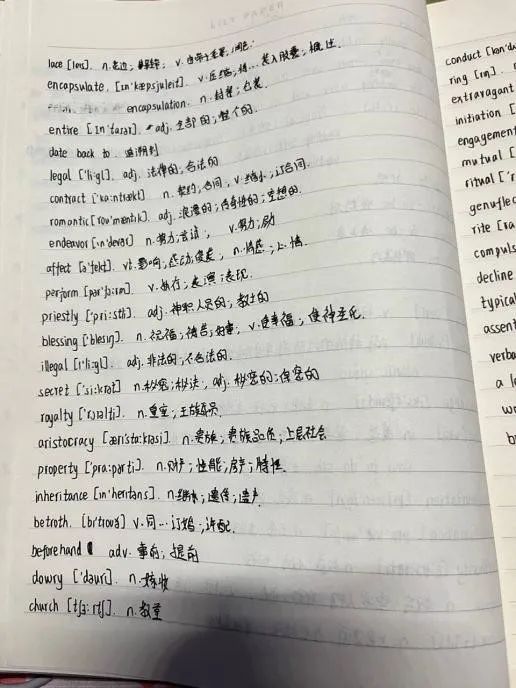 LIST PAPER
lace [leis]. n. 花边; v.
encapsulate. [ɪn'kæpsjuleit]. v. 压缩; 将…装入胶囊; 概述.
encapsulation. n. 封装; 包装
entire [ɪn'taɪər]. adj. 全部的; 整个的.
date back to. 追溯到
legal ['li:gl]. adj. 法律的; 合法的
contract ['ka:ntrækt] n. 契约; 合同; v. 缩小; 订合同.
romantic [roʊ'mæntik]. adj. 浪漫的; 传奇性的; 空想的.
endeavor [ɪn'devər] n. 努力; 尝试; v. 努力;
affect [ə'fekt]. vt. 影响; 感动 n. 情感;
perform [pər'fɔ:rm]. v. 执行; 表演; 表现.
priestly ['pri:stli]. adj. 神职人员的; 教士的
blessing ['blesiŋ]. n. 祝福; 祷告; v. 使幸福; 使神圣化.
illegal [ɪ'li:gl]. adj. 非法的; 不合法的.
secret ['si:krət] n. 秘密; 秘诀; adj. 秘密的; 保密的
royalty ['rɔɪəlti]. n. 皇室; 王族成员.
aristocracy [ˌærɪ'sta:krəsi] n. 贵族; 贵族品质; 上层社会
property ['pra:pərti]. n. 财产; 性能; 房产; 特性.
inheritance [ɪn'heritəns]. n. 继承; 遗传; 遗产.
betroth. [bɪ'troʊð] v. 同…订婚; 许配.
beforehand adv. 事前; 提前
dowry ['daʊri]. n. 嫁妆
church [tʃɜ:rtʃ]. n. 教堂
conduct [kən'dʌ
ring [rɪŋ].
extravagant
initiation [
engagement
mutual [
ritual ['r
genuflec
rite [ra
compuls
decline
typical
assent
verba
a l
wo
b